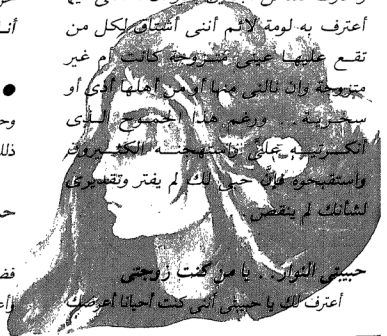 أعترف به لومة لائم أننى أشتاق لكل من
تقع عليها عينى متزوجة كانت أم غير
متزوجة وان نالنى منها أو من أهلها أذى أو
سخرية .. ورغم هذا الجموح الذى
أنكرتيه على واستهجنه الكثيرون
واستقبحوه فإن حبى لك لم يفتر وتقديرى
لشأنك لم ينقص .
حبيبتى النوار .. يا من كنت زوجتى
أعترف لك يا حبيبتى أننى كنت أحيانا أعرضك